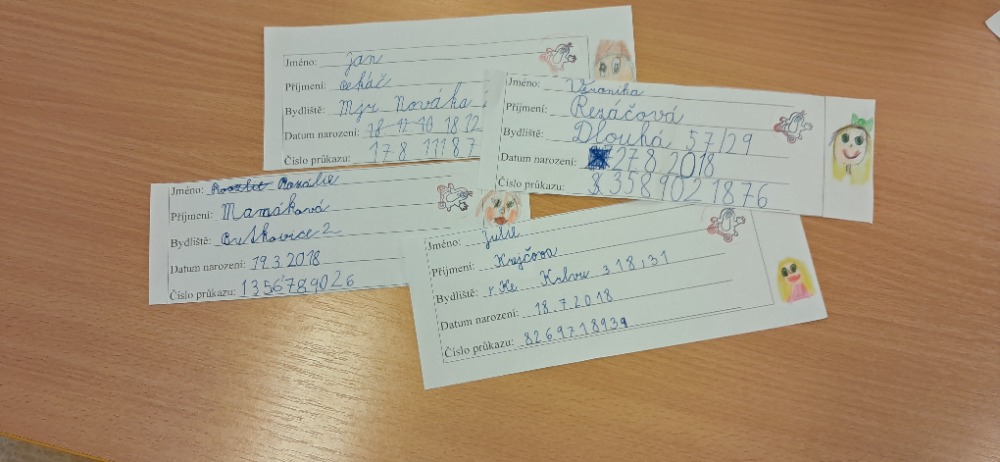 Jméno: Jan
Příjmení: Řeháč
Bydliště: Mjr Nováka
Datum narození: 18 12
Číslo průkazu: 178 11187
Jméno: Veronika
Příjmení: Řezáčová
Bydliště: Dlouhá 57/29
Datum narození: 27 8 2018
Číslo průkazu: 8358902 1876
Jméno: Rozálie
Příjmení: Mamáková
Bydliště: 2
Datum narození: 19.3.2018
Číslo průkazu: 1356789026
Jméno: Julie
Příjmení: Krejčova
Bydliště: 318,31
Datum narození: 18.7.2018
Číslo průkazu: 8269718939